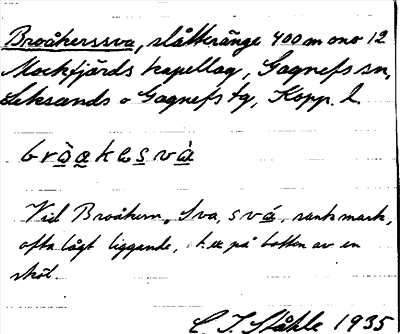 Broåkerssva, slåtteränge 400 m ono 12
Mockfjärds kapellag, Gagnefs sn,
Leksands o Gagnefs tg, Kopp. l.
Vid Broåkern. Sva, svá, sank mark,
ofta lågt liggande, t.ex. på botten av en
sköl.
C. I. Ståhle 1935